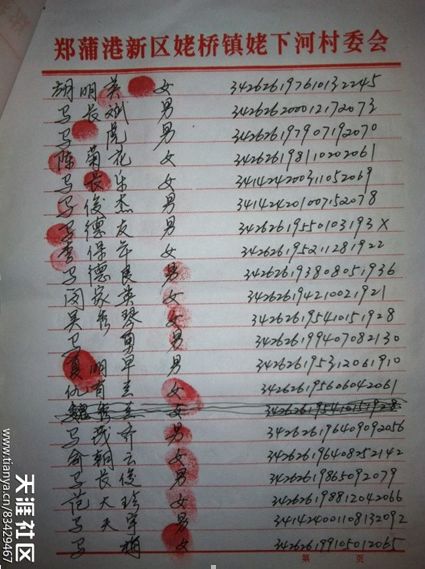 郑蒲港新区姥桥镇姥下河村委会
胡明英 女 342626197610132245
马长斌 男 342626200012172073
马虎 男 342626197907192070
陈菊花 女 342626198110202061
马长乐 341424200311052069
马俊杰 男 341424201007152078
马德友 男 34262619550103193X
李保年 女 342626195211281922
马德良 男 342626193808051936
闵家英 女 342626194210021921
吴秀琴 女 342626195410151928
马勇 男 342626199407082130
夏明早 男 342626195312061910
仇 女 342626195606042061
女 342626195410151928
马茂齐 男 342626196409092056
俞朝云 女 342626196408252142
马长俊 男 34262619865092079
范大珍 女 342626198812042066
马天宇 男 3414242001108132092
马 女 342626199105012065
第 页
天涯社区
www.tianya.cn/83429467